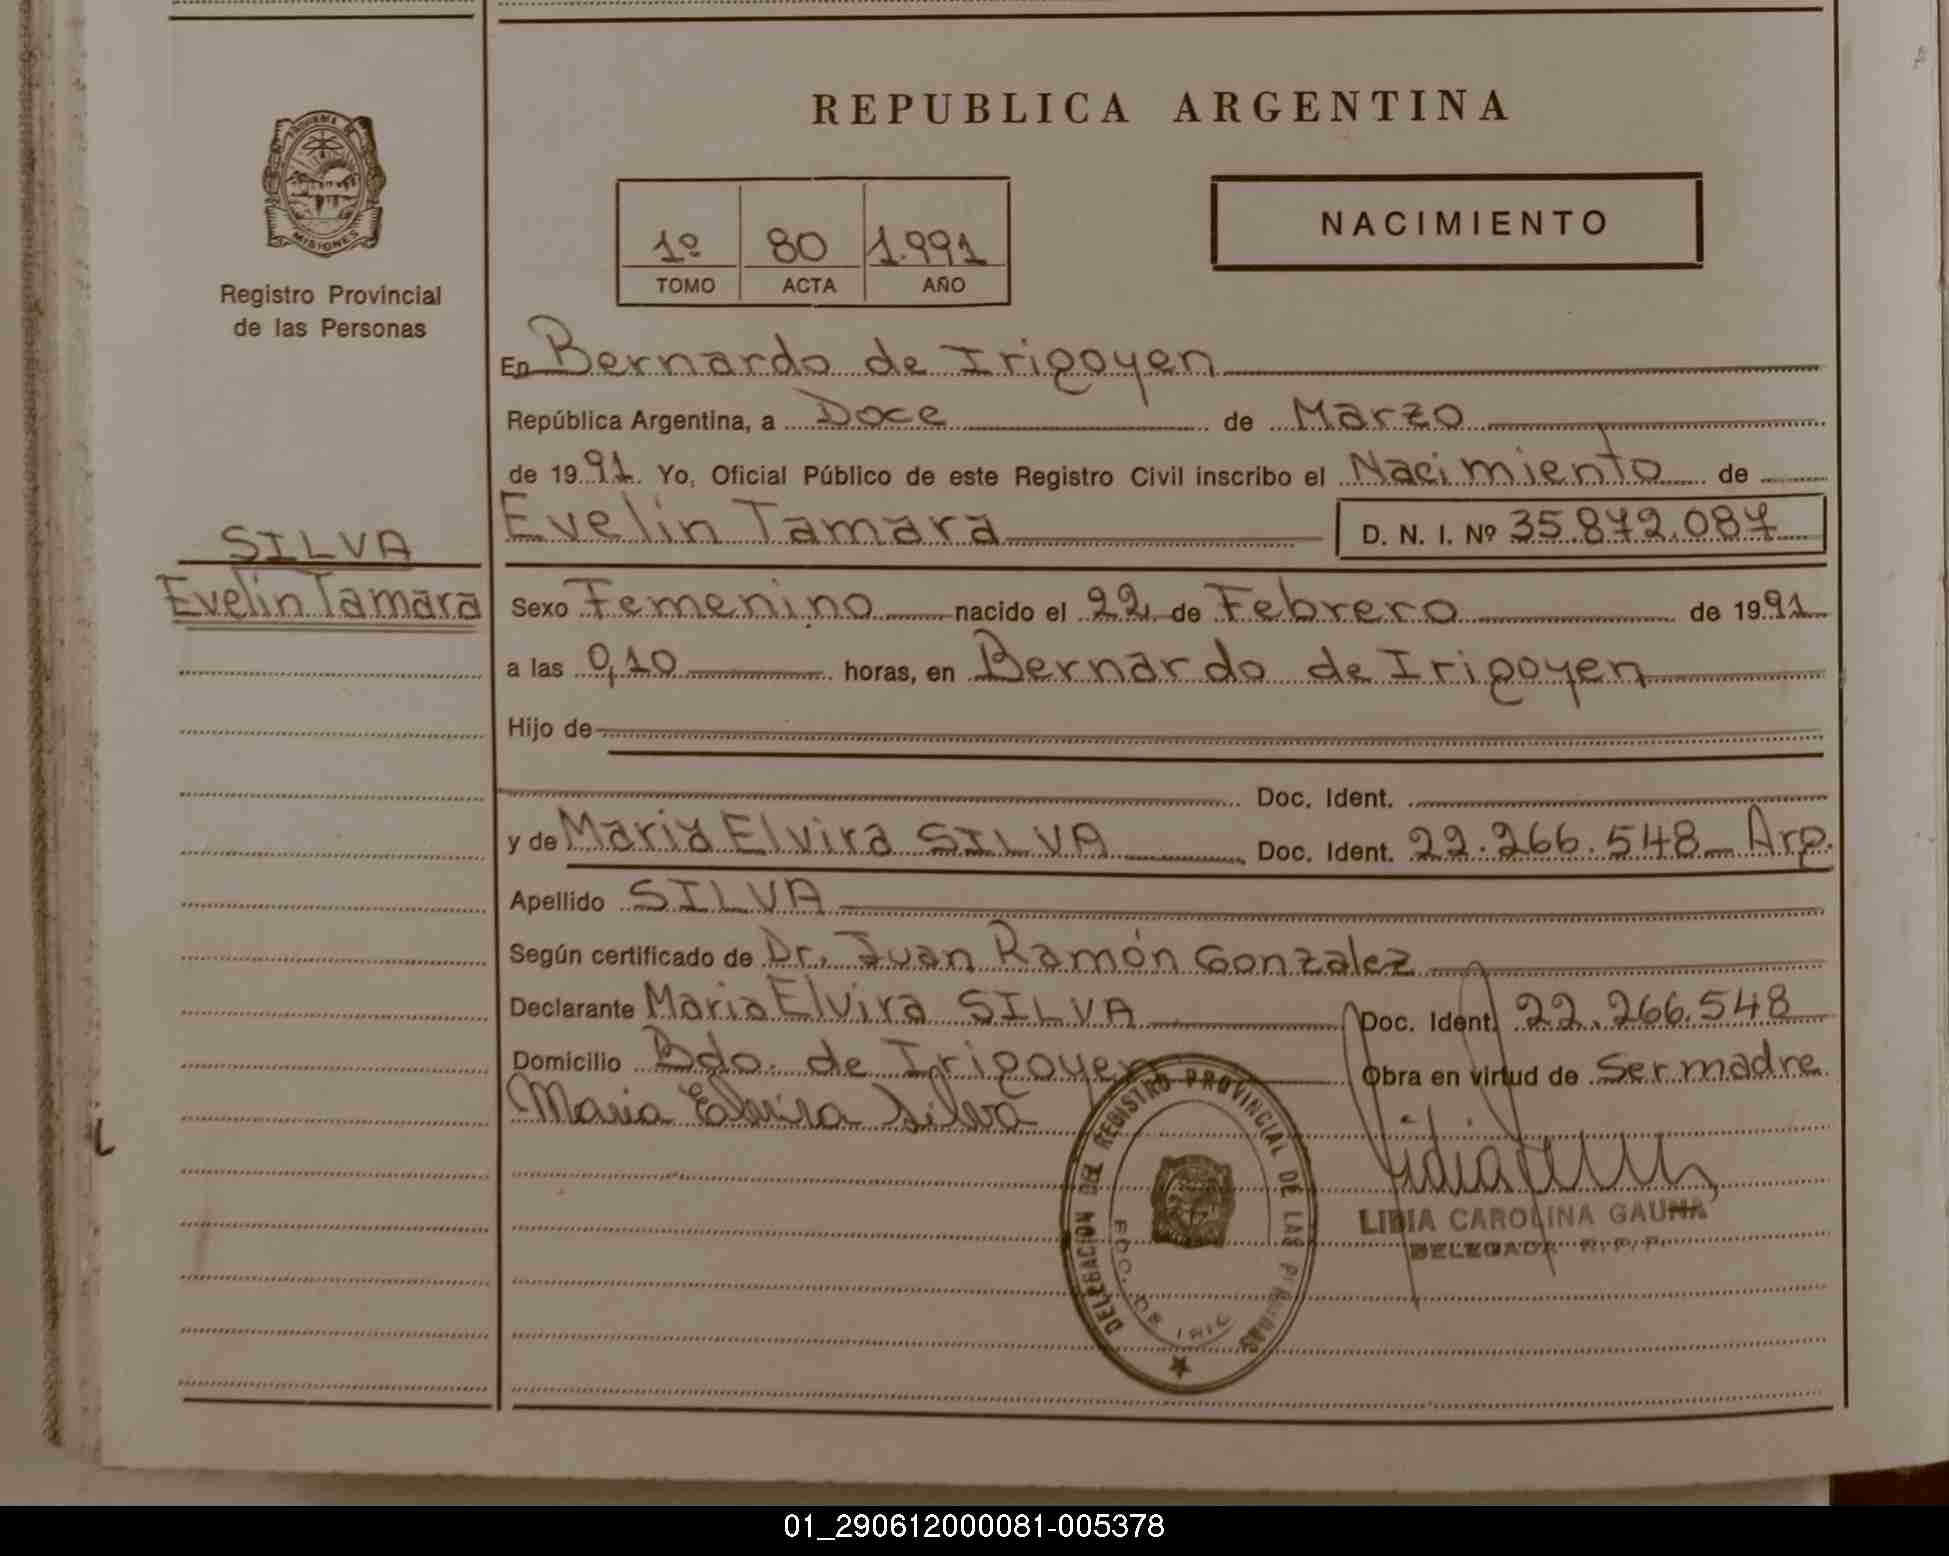 REPUBLICA ARGENTINA
PROVINCIA DE
MISIONES
Registro Provincial
de las Personas
1º 80 1.991
TOMO ACTA AÑO
NACIMIENTO
En Bernardo de Irigoyen
República Argentina, a Doce de Marzo
de 1991. Yo, Oficial Público de este Registro Civil inscribo el Nacimiento de
Evelin Tamara D. N. I. Nº 35.872.087
SILVA
Evelin Tamara
Sexo Femenino nacido el 22 de Febrero de 1991
a las 0,10 horas, en Bernardo de Irigoyen
Hijo de
Doc. Ident.
y de Maria Elvira SILVA Doc. Ident. 22.266.548 Arg.
Apellido SILVA
Según certificado de Dr. Juan Ramón Gonzalez
Declarante Maria Elvira SILVA Doc. Ident. 22.266.548
Domicilio Bdo. de Irigoyen Obra en virtud de Ser madre
Maria Elvira Silva
DELEGACION DEL REGISTRO PROVINCIAL DE LAS PERSONAS
BDO. DE IRIG
LIDIA CAROLINA GAUNA
DELEGADA R.P.P.
01_290612000081-005378